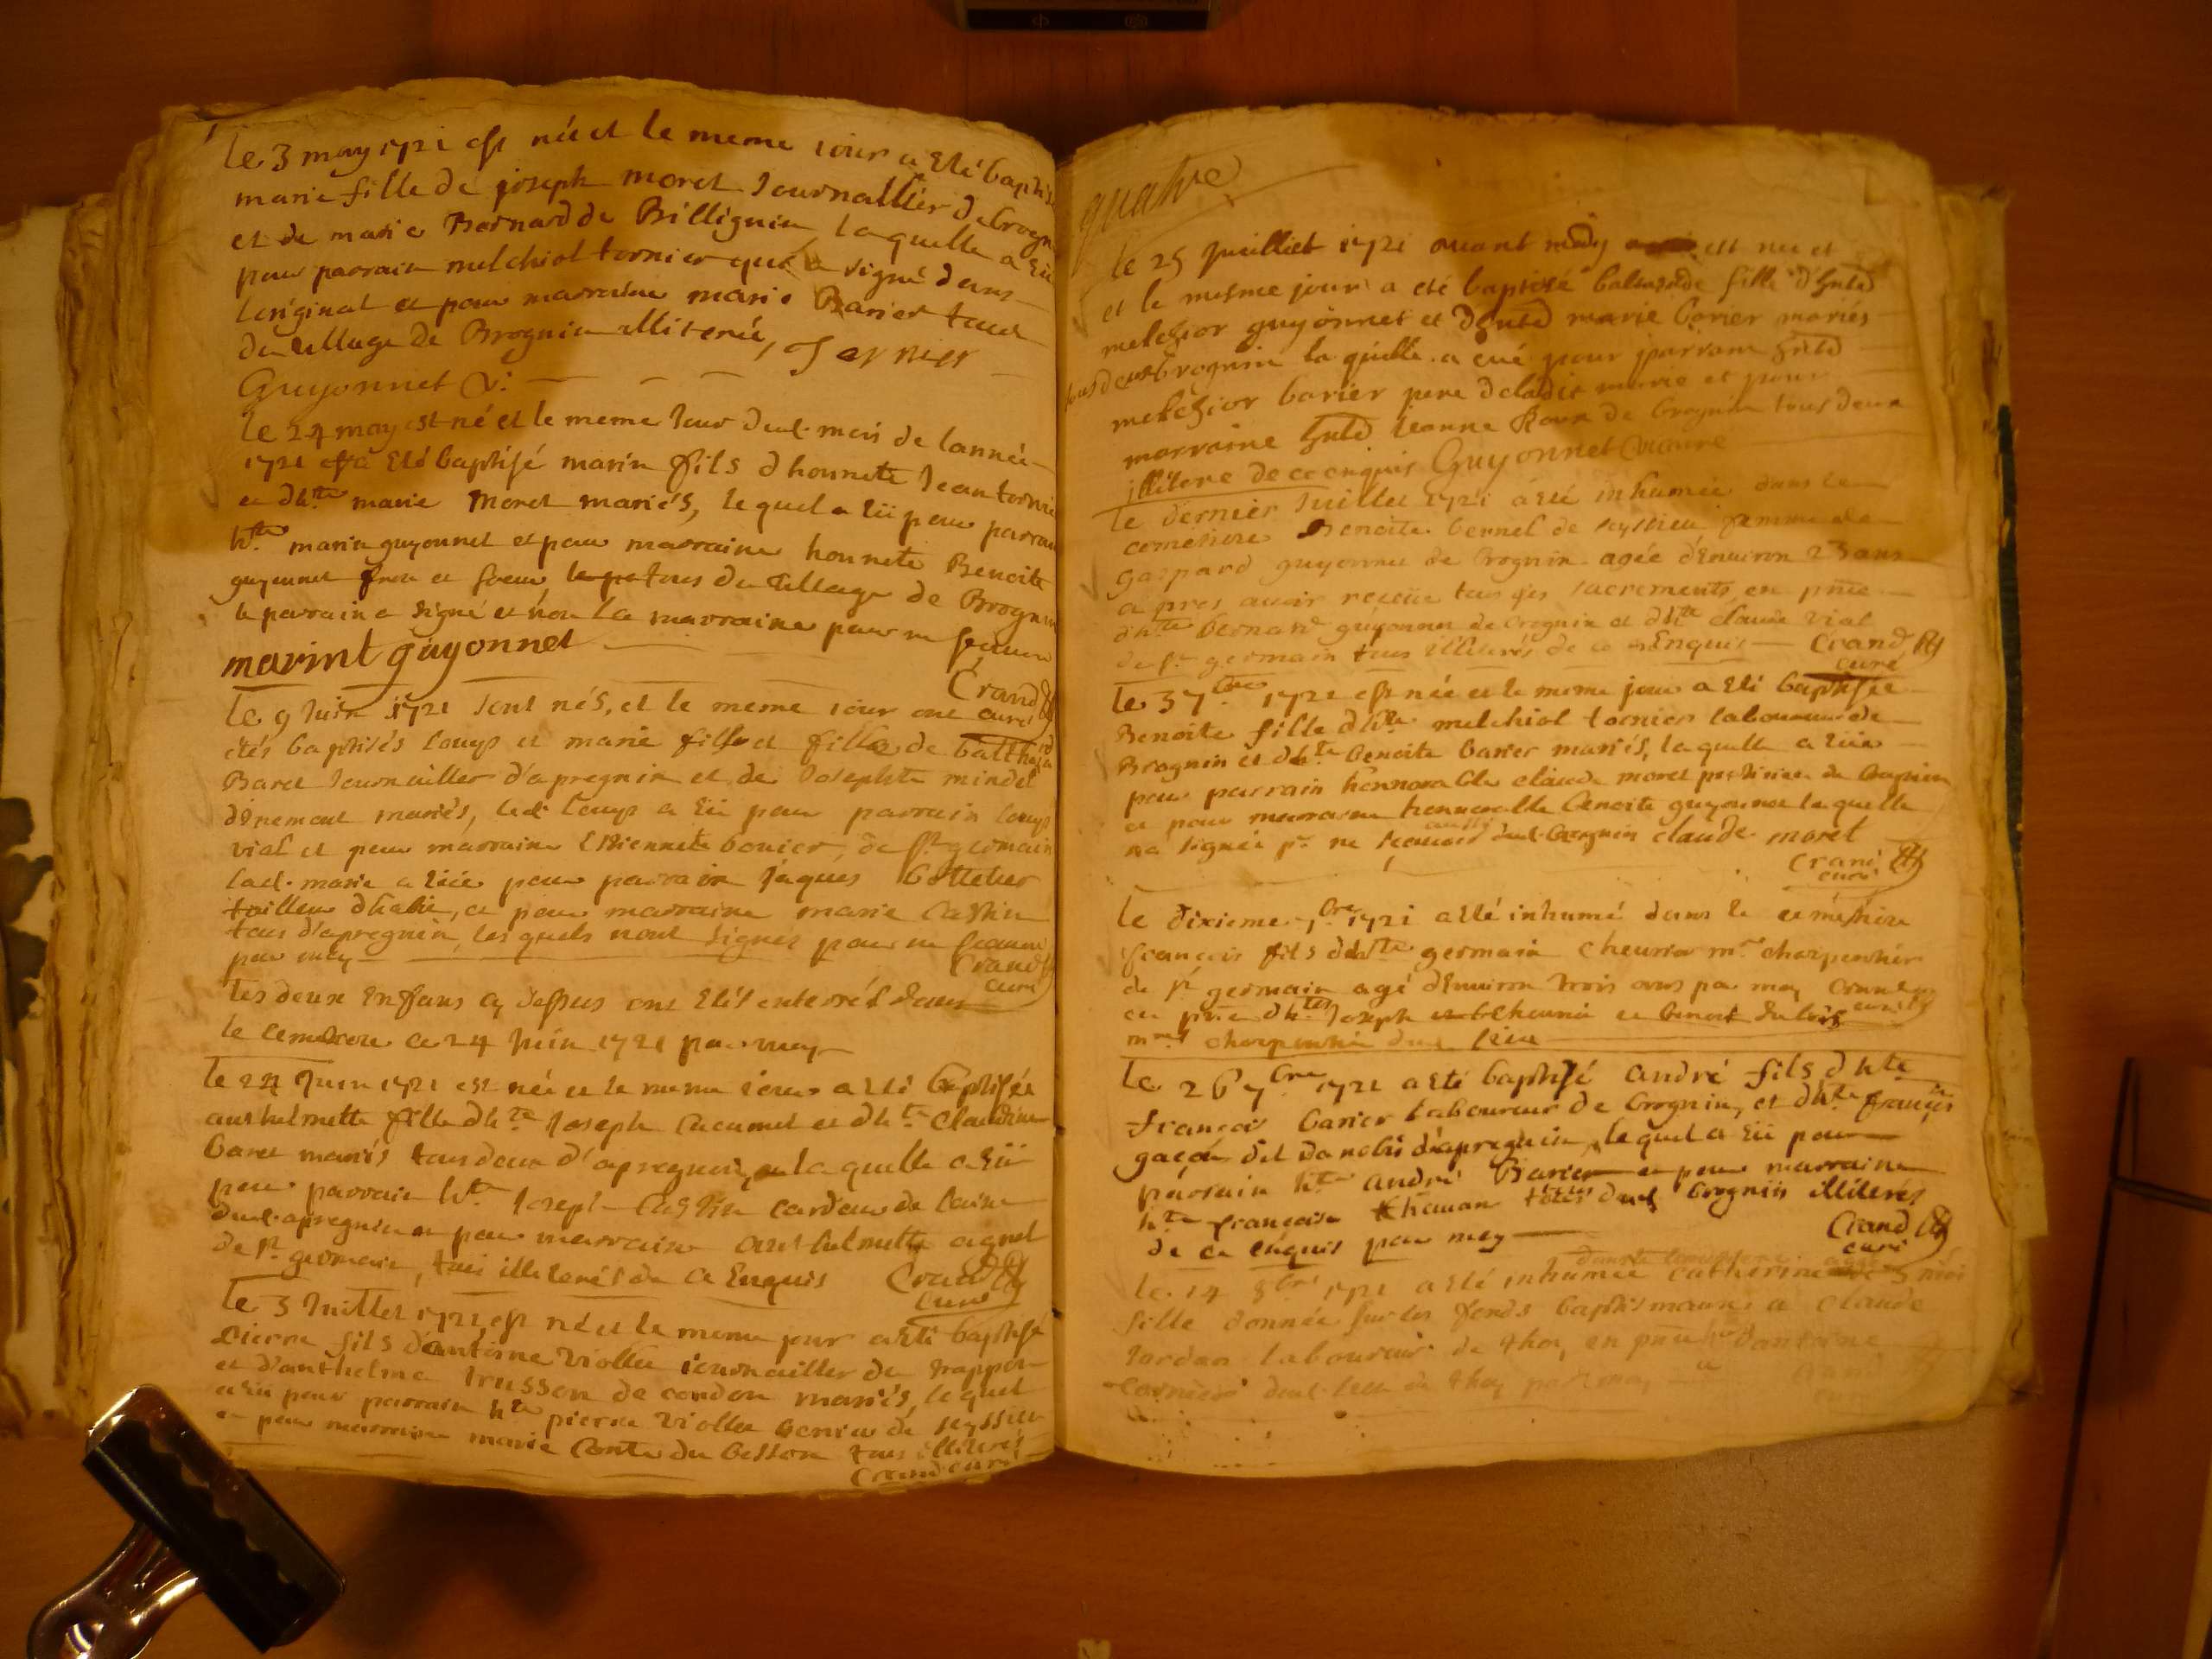 le 3 may 1721 est née et le meme iour a Eté baptis
marie fille de joseph moret Journallier de brogn
et de marie Bernard de Billignin laquelle a Eü
pour parrain melchiol tornier qui a signé dans
loriginal et pour marraine marie Barier tous
du village de Brognin illiterée,
Guyonnet
le 24 may est né et le meme Jour dud. mois de lannée
1721 a Eté baptisé marin fils d honnete Jean tornie
et dh.te marie moret mariés, lequel a Eü pour parrai
h.te marin guyonnet et pour marraine honnete Benoite
guyonnet frere et soeur tous du village de Brognin
le parrain a signé et non la marraine pour ne scavoir
marint guyonnet
Crand
curé
le 9 Juin 1721 sont nés, et le meme iour ont
étés baptisés Loup et marie fils et fille de balthaza
Baret Journailler d'apregnin et de Josephte mindel
mariés, led. Loup a Eü pour parrain Loup
vial et pour marraine Estiennette bonier, de st germain
lad. marie a Eüe pour parrain Jaques bottelier
tailleur dhabit, et pour marraine marie Castin
tous d'apregnin, les quels n'ont signés pour ne scavoir
par moy
Crand
curé
les deux Enfans cy dessus ont Etés enterrés dans
le cemetiere ce 24 Juin 1721 par moy
le 24 Juin 1721 est née et le meme iour a Eté baptisée
anthelmette fille dh.te Joseph Cucumet et dh.te Claudine
baret mariés tous deux d'apregnin, la quelle a Eü
pour parrain h.te Joseph Castin cardeur de laine
dud. apregnin et pour marraine anthelmette agnel
de st germain, tous illiterés de ce Enquis Crand
curé
le 3 Juillet 1721 est né et le meme jour a Eté baptisé
pierre fils d'antoine Viollet iournailler de
et d'anthelme trusson de condon mariés, le quel
a Eü pour parrain h.te pierre Viollet de seyssieu
et pour marraine marie Conte du besson tous illiterés
Crand curé
quatre
le 25 Juilliet 1721 avant midy est née et
et le mesme jour a eté baptisé balthazarde fille d'hnte
melchior guyonnet et d'hnte marie barier mariés
tous deux brognin la quelle a eué pour parrain hnte
melchior barier pere de ladite marie et pour
marraine hnte Jeanne de brognin tous deux
illitere de ce enquis Guyonnet vicaire
le dernier Juillet 1721 a Eté inhumée dans le
cemetiere Benoite bernel de seyssieu femme de
gaspard guyonnet de brognin agée d'Environ 23 ans
apres avoir recëue tous ses sacrements en pnce
dh.te bernard guyonnet de brognin et dh.te claude vial
de st germain tous illiterés de ce Enquis Crand
curé
le 3 7bre 1721 est née et le meme jour a Eté baptisée
Benoite fille dh.te melchiol tornier laboureur de
Brognin et dh.te benoite barier mariés, laquelle a Eüe
pour parrain honnorable claude moret de
et pour marraine honnorable benoite guyonnet laquelle
na signée pr ne scavoir dud. brognin claude moret
Crand
curé
le dixieme 7bre 1721 a Eté inhumé dans le cemetiere
francois fils dh.te germain cheurier m.re charpentier
de st germain agé d'Environ trois ans par moy Crand
curé
en pnce dh.tes Joseph et benoit dubois
m.res charpentiers dud. lieu
le 26 7bre 1721 a Eté baptisé andré fils dh.te
francois barier laboureur de brognin, et dh.te françoise
gaçon dit danebis d'apregnin, le quel a Eü pour
parrain h.te andré Barier et pour marraine
h.te françoise tous dud. brognin illiterés
de ce enquis par moy
Crand
curé
dans le cimetiere
le 14 8bre 1721 a Eté inhumée catherine 3 mois
fille donnée sur les fonds baptismaux a claude
Jordan laboureur de thoy, en pnce d'antoine
dud. lieu de thoy par moy